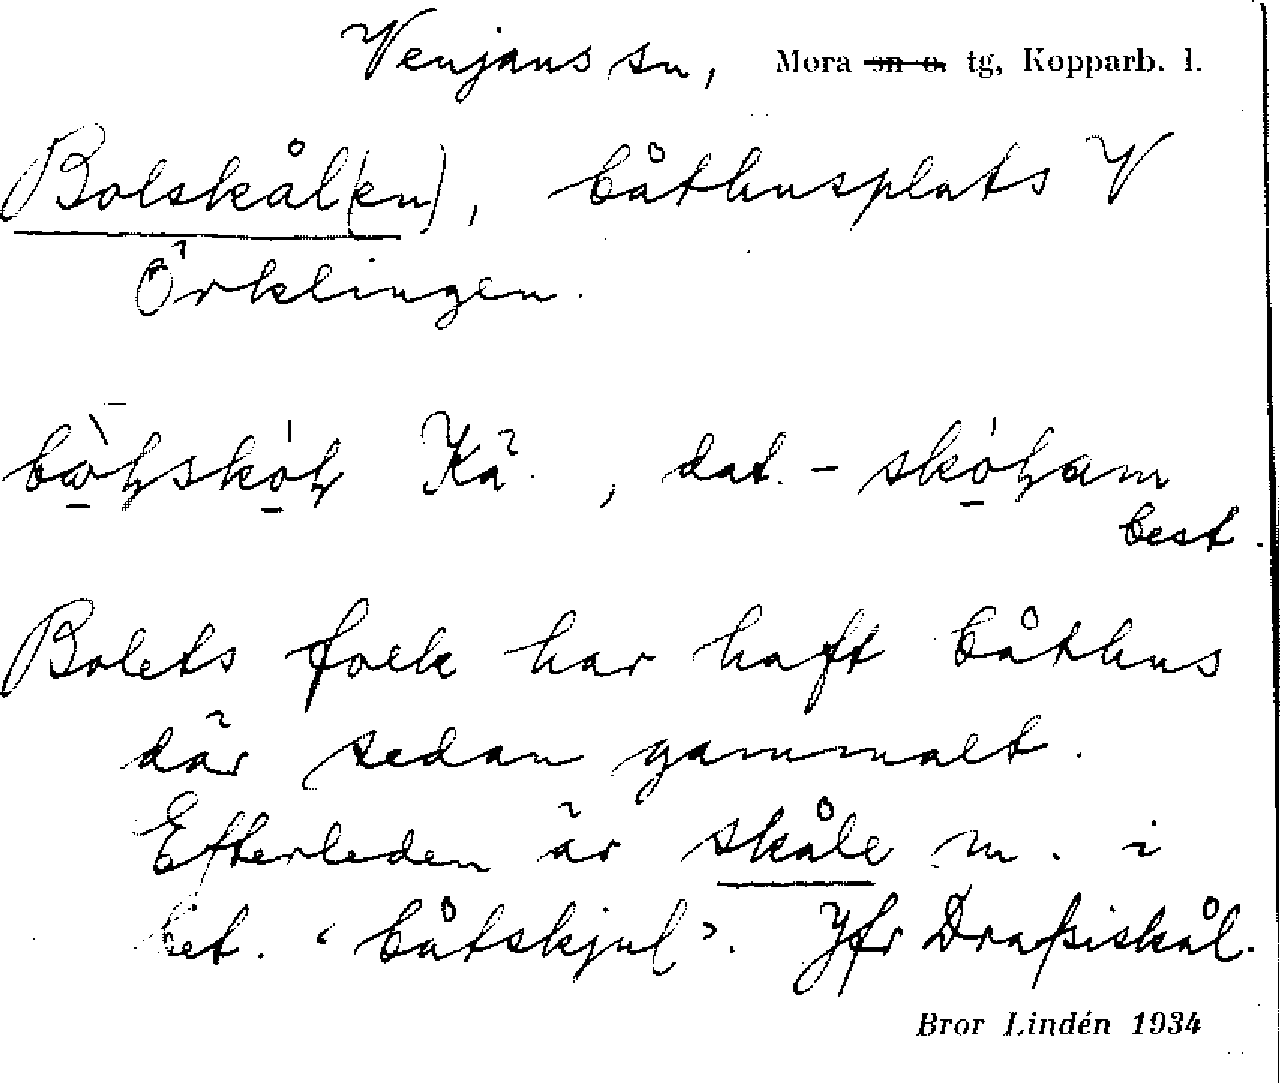 Venjans sn, Mora sn o. tg, Kopparb. l.
Bolskål(en), båthusplats V
Örklingen.
Kä. , dat. -
best.
Bolets folk har haft båthus
där sedan gammalt.
Efterleden är skåle m. i
bet. ‘båtskjul’. Jfr Drafsiskål.
Bror Lindén 1934